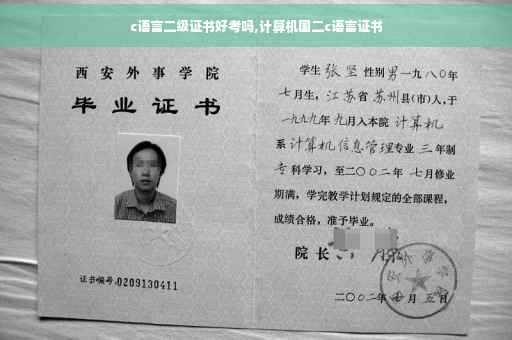 c语言二级证书好考吗,计算机国二c语言证书
西安外事学院
毕业证书
证书编号:0209130411
学生 张坚 性别 男 一九八〇年
七月生,江苏省 苏州县(市)人,于
一九九九年 九月入本院 计算机
系 计算机信息管理专业 三 年制
专科学习,至二〇〇二年 七月修业
期满,学完教学计划规定的全部课程,
成绩合格,准予毕业。
院长
二〇〇二年 月 五日